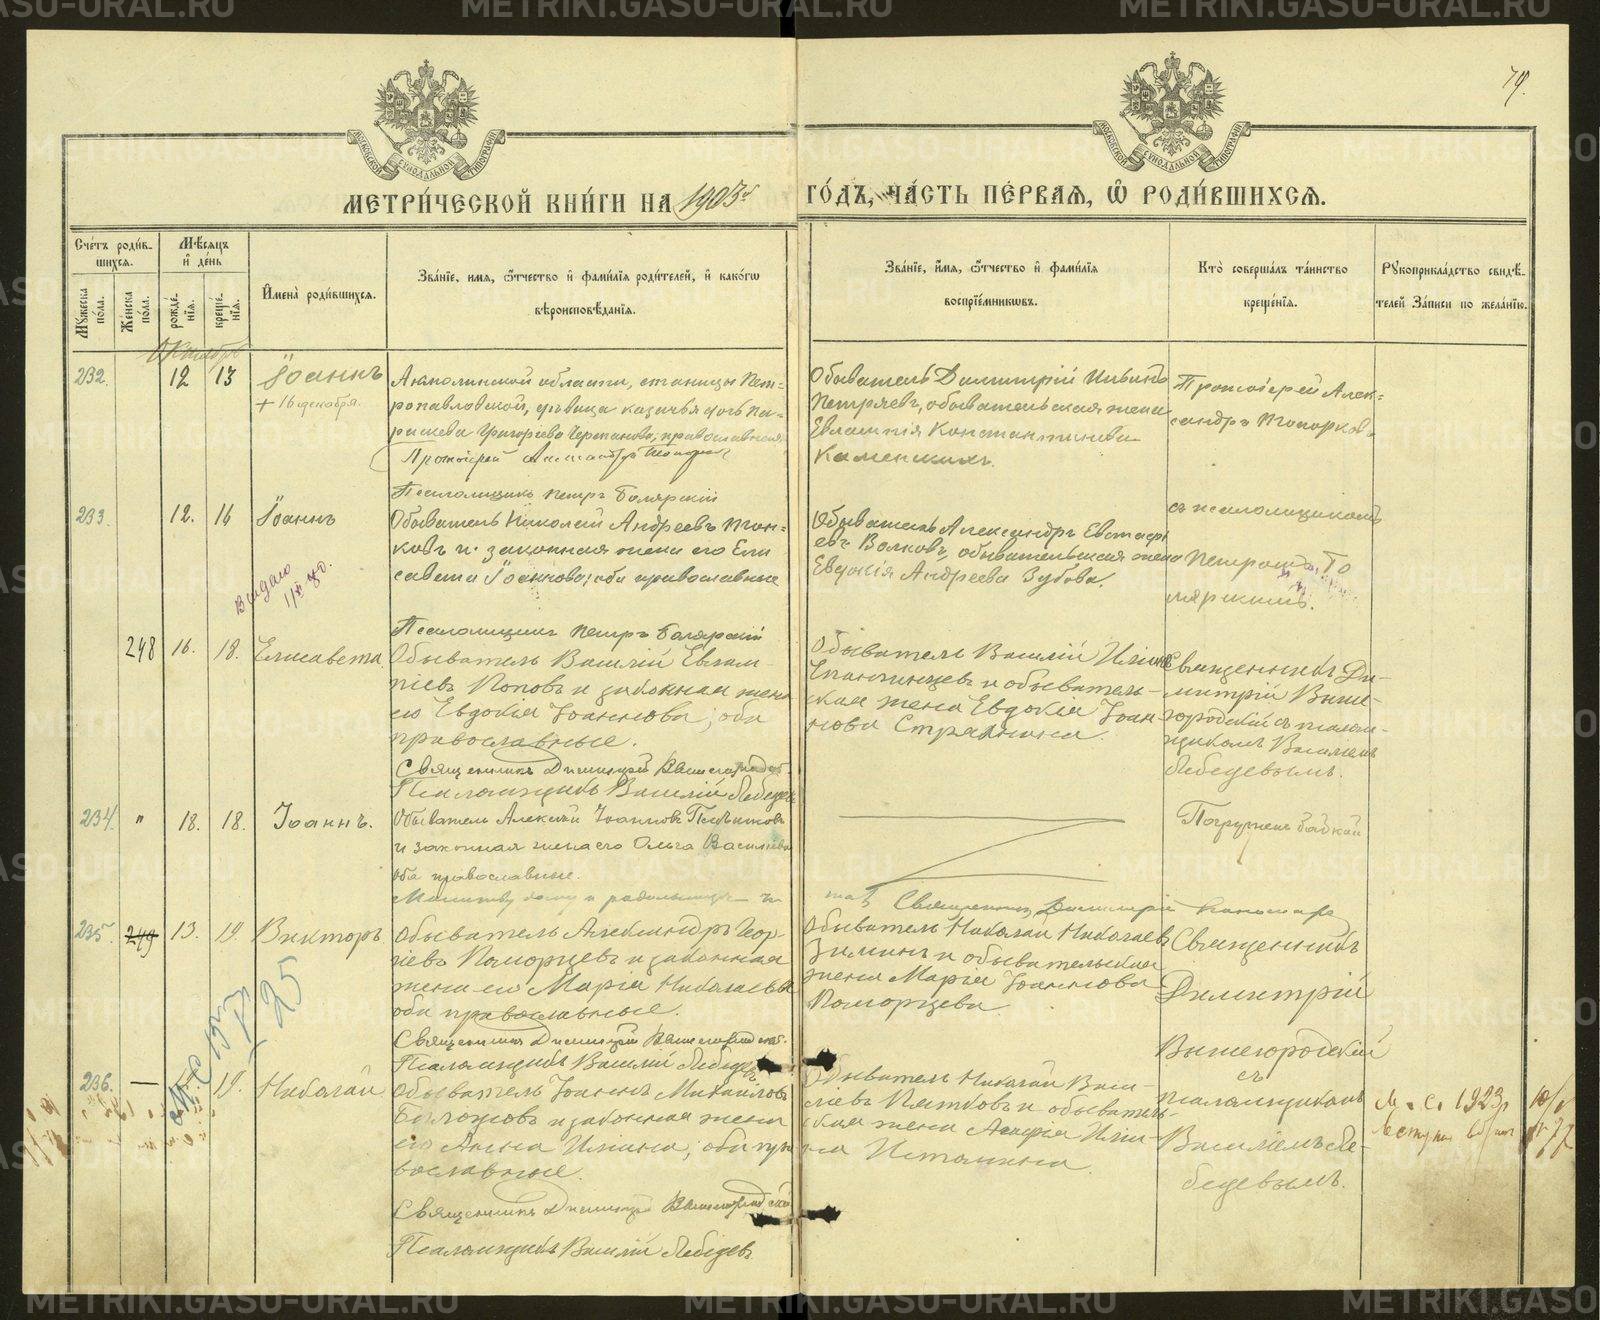 METRIKI.GASU-URAL.RU
79.
МОСКОВСКОЙ СѴНОДАЛЬНОЙ ТИПОГРАФІИ
МОСКОВСКОЙ СѴНОДАЛЬНОЙ ТИПОГРАФІИ
МЕТРИ́ЧЕСКОЙ КНИ́ГИ НА 1903й ГО́ДЪ, ЧА́СТЬ ПЕ́РВАЯ, Ѿ РОДИ́ВШИХСЯ.
Сче́тъ роди́в-
шихся.
Мꙋ́жеска по́ла.
Же́нска по́ла.
Мѣ́сяцъ и҆ де́нь
рожде́нїя.
креще́нїя.
И҆мена̀ роди́вшихся.
Зва́нїе, и҆мя, ѻ҆́тчество и҆ фами́лїя роди́телей, и҆ како́гѡ
вѣроисповѣ́данїя.
Зва́нїе, и҆́мя, ѻ҆́тчество и҆ фами́лїя
воспрїе́мникѡвъ.
Кто̀ соверша́лъ та́инство
креще́нїя.
Рꙋкоприкла́дство свидѣ́-
телей За́писи по жела́нїю.
Октябрь
232. 12 13 Іоаннъ
+ 16 декабря.
Акмолинской области, станицы Пет-
ропавловской, дѣвица казачья дочь Па-
раскева Григорьева Черепанова, православная
Протоіерей Александръ Топорковъ
Псаломщикъ Петръ Боярскій
Обыватель Димитрій Ильинъ
Петряевъ, обывательская жена
Евлампія Константинова
Каменскихъ.
Протоіерей Алек-
сандръ Топорковъ
съ псаломщикомъ
Петромъ Бо
ярскимъ.
233. 12. 16 Іоаннъ
Выдано
Обыватель Николай Андреевъ
ковъ и законная жена его Ели
савета Іоаннова; оба православные
Псаломщикъ Петръ Боярскій
Обыватель Александръ Евстафі
евъ Волковъ, обывательская жена
Евдокія Андреева Зубова.
248 16. 18. Елисавета
Обыватель Василій Евлам-
піевъ Поповъ и законная жена
его Евдокія Іоаннова; оба
православные.
Священникъ Димитрій Вышегородскій.
Псаломщикъ Василій Лебедев
Обыватель Василій Ильинъ
Епанчинцевъ и обыватель-
ская жена Евдокія Іоан-
нова Стряпнина.
Священникъ Ди-
митрій Выше-
городскій съ псалом-
щикомъ Василіемъ
Лебедевымъ.
234. " 18. 18. Іоаннъ.
Обыватель Алексѣй Іоанновъ
и законная жена его Ольга Васильева
оба православные.
Погруженъ бабкой
Молитву дому и родильницѣ
Священникъ Димитрій
235. 249 13. 19. Викторъ
Обыватель Александръ Геор-
гіевъ Поморцевъ и законная
жена его Марія Николаева
оба православные.
Священникъ Димитрій Вышегородскій.
Псаломщикъ Василій Лебедевъ
Обыватель Николай Николаевъ
Зиминъ и обывательская
жена Марія Іоаннова
Поморцева.
Священникъ
Димитрій
Вышегородскій
съ
псаломщикомъ
Василіемъ Ле-
бедевымъ.
25
236. — 19. Николай
Обыватель Іоаннъ Михайловъ
и законная жена
его Анна Ильина; оба пра
вославные.
Священникъ Димитрій Вышегородскій
Псаломщикъ Василій Лебедевъ
Обыватель Николай Васи-
льевъ Пятковъ и обыватель-
ская жена Агафія Ильи-
на Истомина.
1923